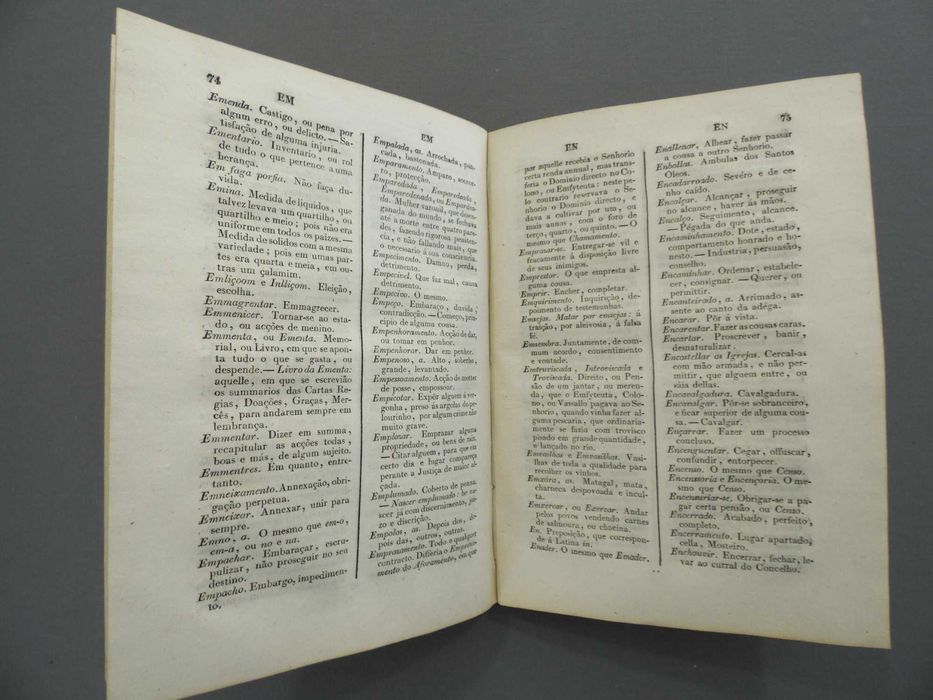 74
EM
Emenda. Castigo, ou pena por
algum erro, ou delicto. — Sa-
tisfação de alguma injuria.
Ementario. Inventario, ou rol
de tudo o que pertence a uma
herança.
Em faga porfia. Não faça du-
vida.
Emina. Medida de liquidos, que
talvez levava um quartilho, ou
quartilho e meio; pois não era
uniforme em todos os paizes. —
Medida de solidos com a mesma
variedade; pois em umas par-
tes era quarta e meia, em ou-
tras um çalamim.
Emliçoom e Inlliçom. Eleição,
escolha.
Emmagrentar. Emmagrecer.
Emmenicer. Tornar-se ao esta-
do, ou acções de menino.
Emmenta, ou Ementa. Memo-
rial, ou Livro, em que se apon-
ta tudo o que se gasta, ou
despende. — Livro da Ementa:
aquelle, em que se escrevião
os summarios das Cartas Re-
gias, Doações, Graças, Mer-
cês, para andarem sempre em
lembrança.
Emmentar. Dizer em summa,
recapitular as acções todas,
boas e más, de algum sujeito.
Emmentres. Em quanto, entre-
tanto.
Emneixamento. Annexação, obri-
gação perpetua.
Emneixar. Annexar, unir para
sempre.
Emno, a. O mesmo que em-o,
em-a, ou no e na.
Empachar. Embaraçar, escru-
pulizar, não proseguir no seu
destino.
Empacho. Embargo, impedimen-
to.
EM
Empalada, as. Arrochada, pan-
cada, bastonada.
Emparamento. Amparo, soccor-
ro, protecção.
Emparedada, Emparedeada,
Emparedenada, ou Emparde-
da. Mulher varonil, que desen-
ganada do mundo, se fechava
até a morte entre quatro pare-
des, fazendo rigorosa peniten-
cia, e não fallando mais, que
o necessario á sua consciencia.
Empecimento. Damno, perda,
detrimento.
Empecivel. Que faz mal, causa
detrimento.
Empecivo. O mesmo.
Empeço. Embaraço, duvida,
contradicção. — Começo, prin-
cipio de alguma cousa.
Empenhoramento. Acção de dar,
ou tomar em penhor.
Empenhorar. Dar em penhor.
Empenoso, a. Alto, soberbo,
grande, levantado.
Empessoamento. Acção de metter
de posse, empossoar.
Empicotar. Expôr alguem á ver-
gonha, preso ás argolas do pe-
lourinho, por algum crime não
muito grave.
Emplazar. Emprazar alguma
propriedade, ou bens de raiz.
— Citar alguem, para que em
certo dia e lugar compareça
perante a Justiça de maior al-
çada.
Emplumado. Coberto de penas.
— Nascer emplumado: he nas-
cer já com discernimento, jui-
zo e discrição.
Empolos, as. Depois dos, de-
pois das, outros, outras.
Emprazamento. Todo e qualquer
contracto. Differia o Empraza-
mento do Aforamento, em que
EN
por aquelle recebia o Senhorio
certa renda annual, mas trans-
feria o Dominio directo no Co-
lono, ou Emfyteuta: neste pe-
lo contrario reservava o Se-
nhorio o Dominio directo, e
dava a cultivar por um, ou
mais annos, com o foro de
terço, quarto, ou quinto. — O
mesmo que Chamamento.
Emprazar-se. Entregar-se vil e
fracamente á disposição livre
de seus inimigos.
Emprestor. O que empresta al-
guma cousa.
Emprir. Encher, completar.
Enquirimento. Inquirição, de-
poimento de testemunhas.
Emsejas. Matar por emsejas: á
traição, por aleivosia, á falsa
fé.
Emsembra. Juntamente, de com-
mum acordo, consentimento
e vontade.
Emtruviscada, Introviscada e
Troviscada. Direito, ou Pen-
são de um jantar, ou meren-
da, que o Emfyteuta, Colo-
no, ou Vassallo pagava ao Se-
nhorio, quando vinha fazer al-
guma pescaria, que ordinaria-
mente se fazia com trovisco
pisado em grande quantidade,
e lançado no rio.
Emvasilhas e Envasilhas. Vasi-
lhas de toda a qualidade para
recolher os vinhos.
Emxára, as. Matagal, mata,
charneca despovoada e incul-
ta.
Emxercar, ou Exercar. Andar
pelos povos vendendo carnes
de salmoura, ou chacina.
En. Preposição, que correspon-
de á Latina in.
Enader. O mesmo que Emader.
EN
75
Enallenar. Alhear, fazer passar
a cousa a outro Senhorio.
Enbollas. Ambulas dos Santos
Oleos.
Encadarroado. Sevéro e de ce-
nho caído.
Encalçar. Alcançar, proseguir
no alcance, haver ás mãos.
Encalço. Seguimento, alcance.
— Pégada do que anda.
Encaminhamento. Dote, estado,
comportamento honrado e ho-
nesto. — Industria, persuasão,
conselho.
Encaminhar. Ordenar, estabele-
cer, consignar. — Querer, ou
permittir.
Encanteirado, a. Arrimado, as-
sente ao canto da adéga.
Encarar. Pôr á vista.
Encarentar. Fazer as cousas caras.
Encartar. Proscrever, banir,
desnaturalizar.
Encastellar as Igrejas. Cercal-as
com mão armada, e não per-
mittir, que alguem entre, ou
sáia dellas.
Encavalgadura. Cavalgadura.
Encavalgar. Pôr-se sobranceiro,
e ficar superior de alguma cou-
sa. — Cavalgar.
Ençarrar. Fazer um processo
concluso.
Encenguentar. Cegar, offuscar,
confundir, entorpecer.
Encenso. O mesmo que Censo.
Encensoria e Encençoria. O mes-
mo que Censo.
Encensuriar-se. Obrigar-se a pa-
gar certa pensão, ou Censo.
Encerrado. Acabado, perfeito,
completo.
Encerramento. Lugar apartado,
cella, Mosteiro.
Enchouvir. Encerrar, fechar, le-
var ao curral do Concelho.